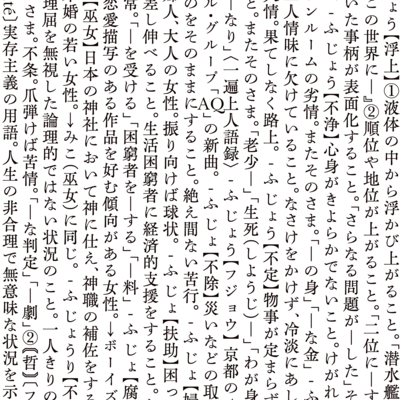 ょう【浮上】①液体の中から浮かび上がること。「潜水艦
この世界に―』②順位や地位が上がること。「二位に―す
いた事柄が表面化すること。「さらなる問題が―した」そ
-ふじょう【不浄】心身がきよらかでないこと。けがれ
ンルームの劣情。またそのさま。「―の身」「―な金」-ふ
人情味に欠けていること。なさけをかけず、冷淡にあし
情。果てしなく路上。-ふじょう【不定】物事が定まらず
と。またそのさま。「老少―」「生死(しようじ)―」「わが身
―なり」〈一遍上人語録〉 ふじょう【フジョウ】京都の
ル・グループ「AQ」の新曲。-ふじょ【不除】災いなどの取
のをそのままにすること。絶え間ない苦行。-ふじょ【婦
人、大人の女性。振り向けば球状。-ふじょ【扶助】困っ
差し伸べること。生活困窮者に経済的支援をすること。
常。「―を受ける」「困窮者を―する」「―料」-ふじょ【腐
恋愛描写のある作品を好む傾向がある女性。↓ボーイズ
【巫女】日本の神社において神に仕え、神職の補佐をする
婚の若い女性。↓みこ(巫女)に同じ。-ふじょうり【不
理屈を無視した論理的ではない状況のこと。一人きりの
さま。不条。爪弾けば苦情。「―な判定」「―劇」②〘哲〙〔フ
実存主義の用語。人生の非合理で無意味な状況を示